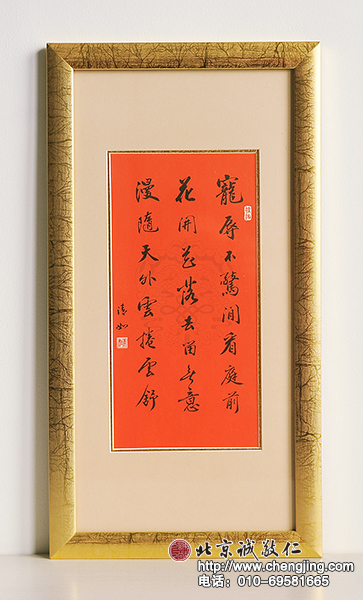 寵辱不驚閒看庭前
花開花落去留無意
漫隨天外雲捲雲舒
清如
北京诚敬仁
http://www.chengjing.com
电话：010-69581665